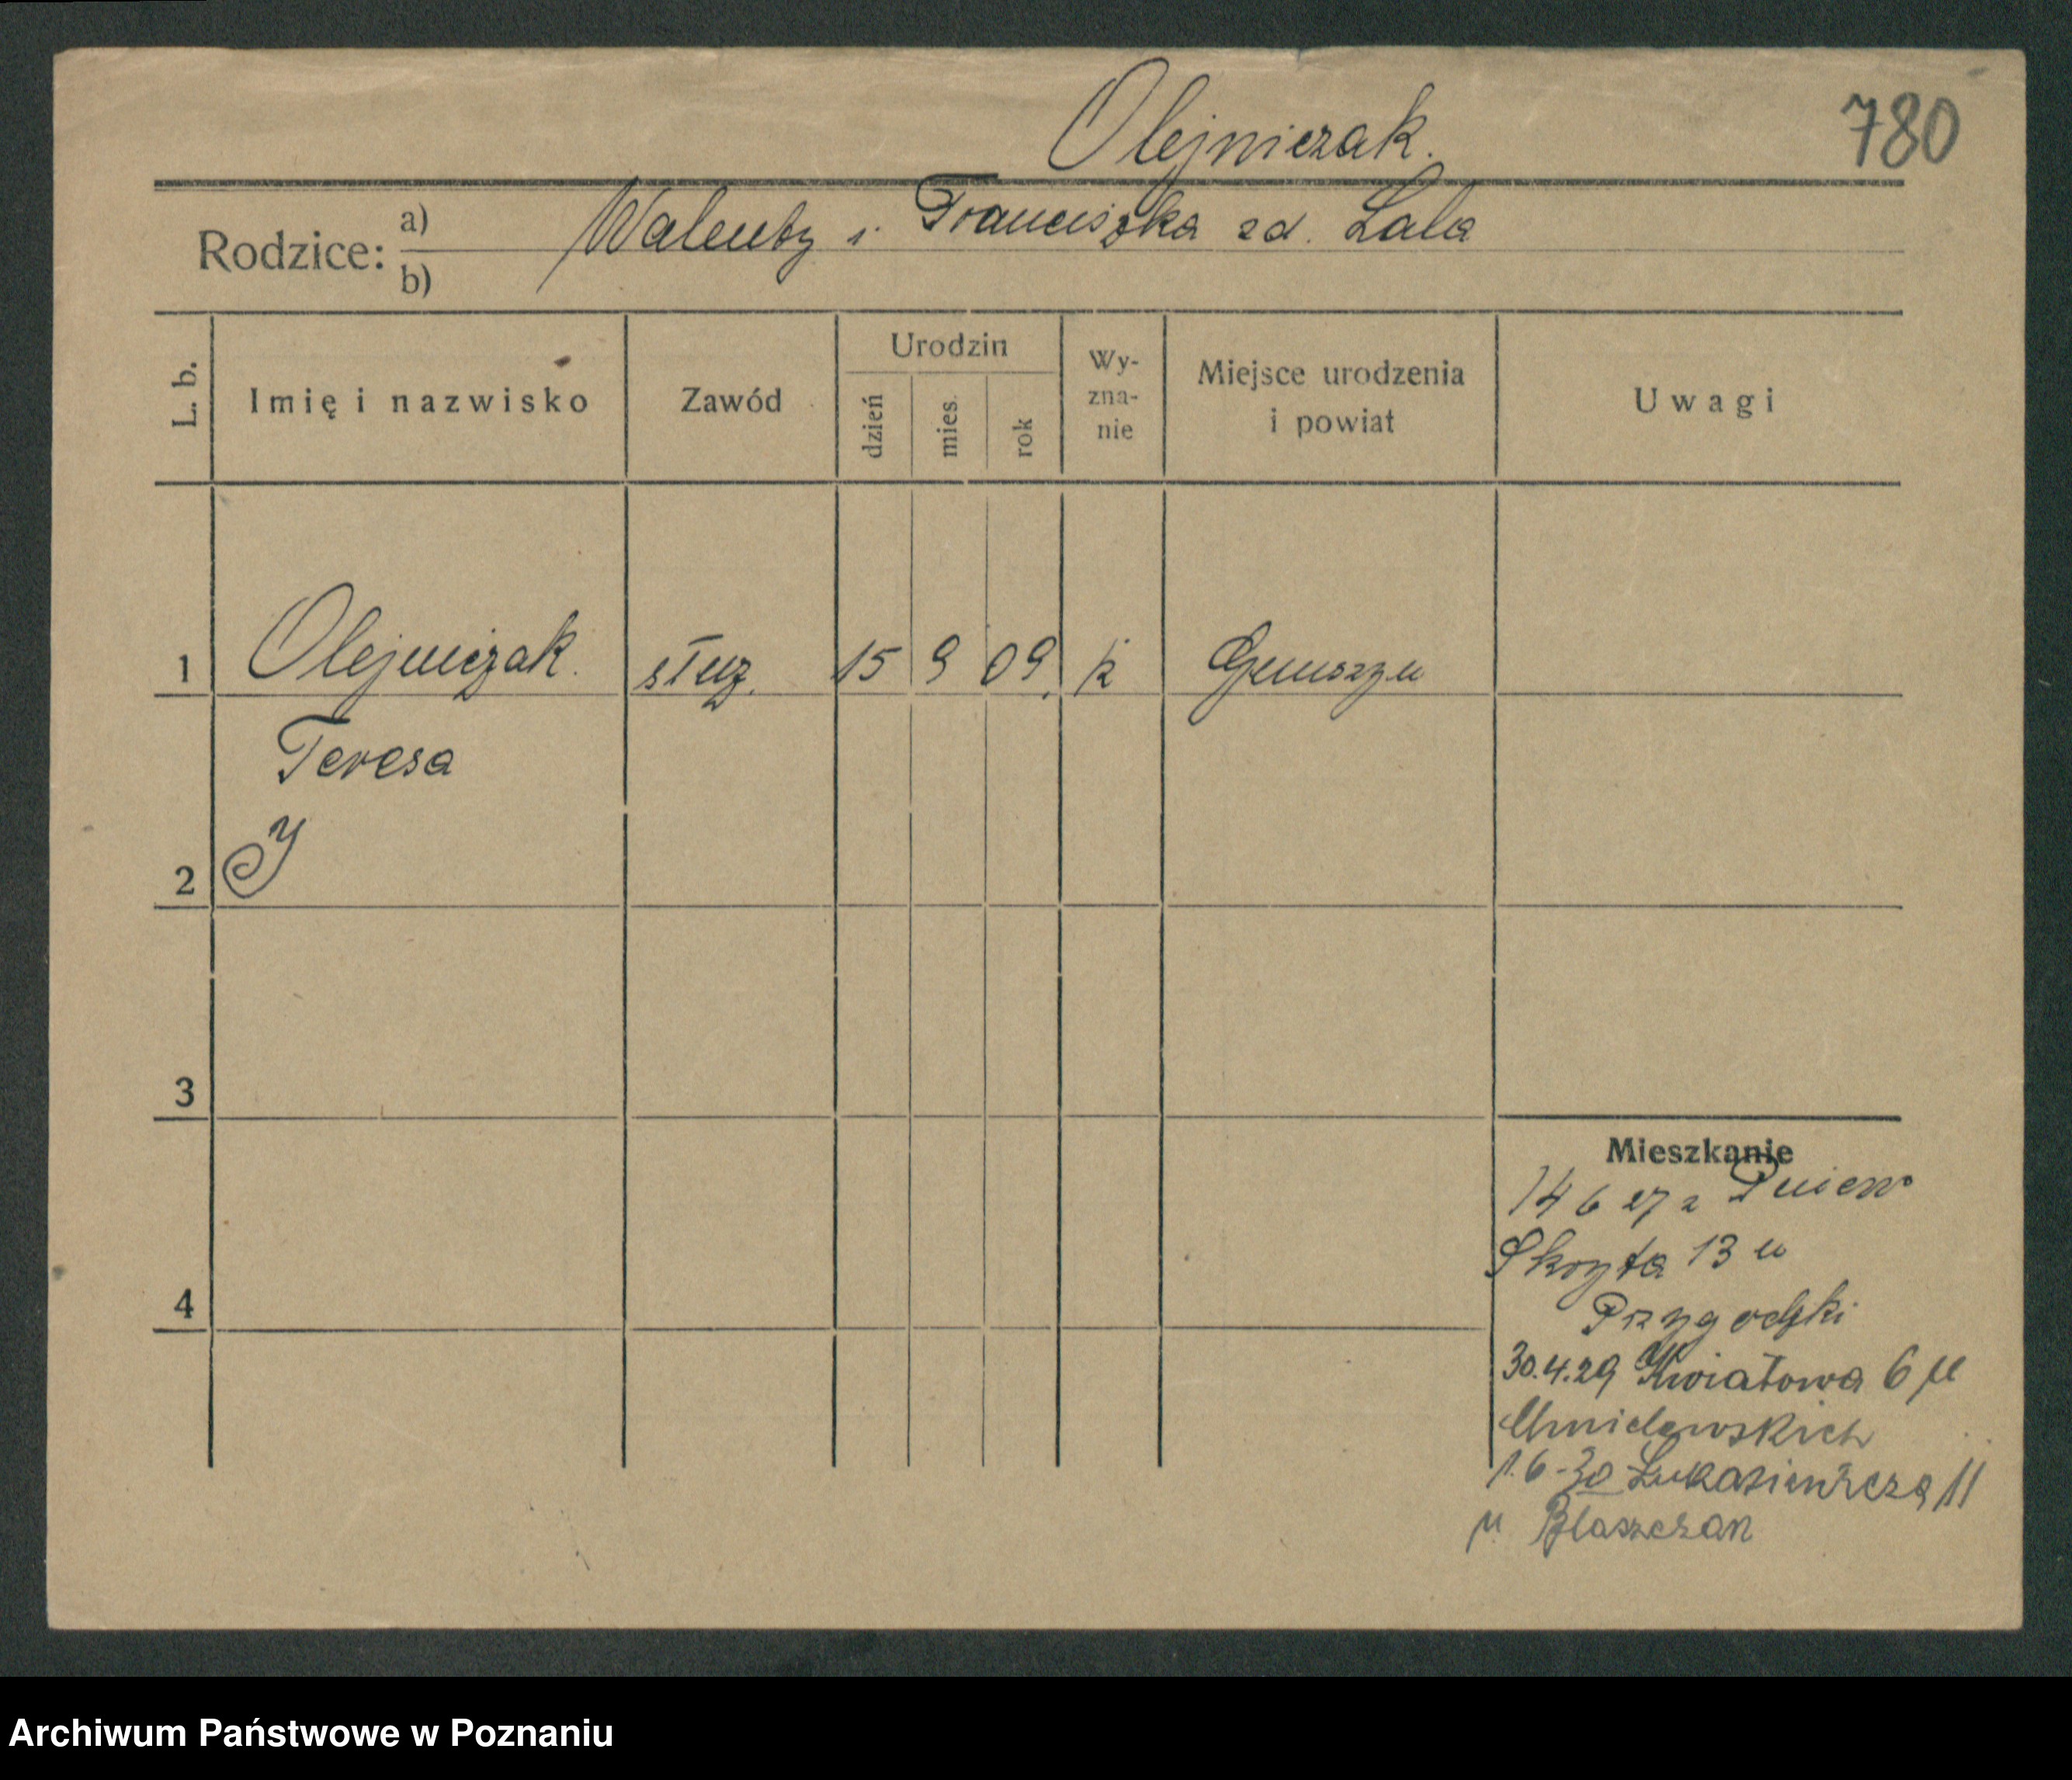 Olejniczak.
780
Rodzice: a) b)
Walenty i Franciszka zd. Lala
L. b.
Imię i nazwisko
Zawód
Urodzin
dzień
mies.
rok
Wy-
zna-
nie
Miejsce urodzenia
i powiat
Uwagi
1 Olejniczak. służ. 15 9 09. k
Teresa
2
3
4
Mieszkanie
14 6 27 z Pniew
Skryta 13 u
Przygodzki
30.4.29 Kwiatowa 6 u
Chmielewskich
1.6-30 Lukasiewicza 11
u Blaszczak
Archiwum Państwowe w Poznaniu